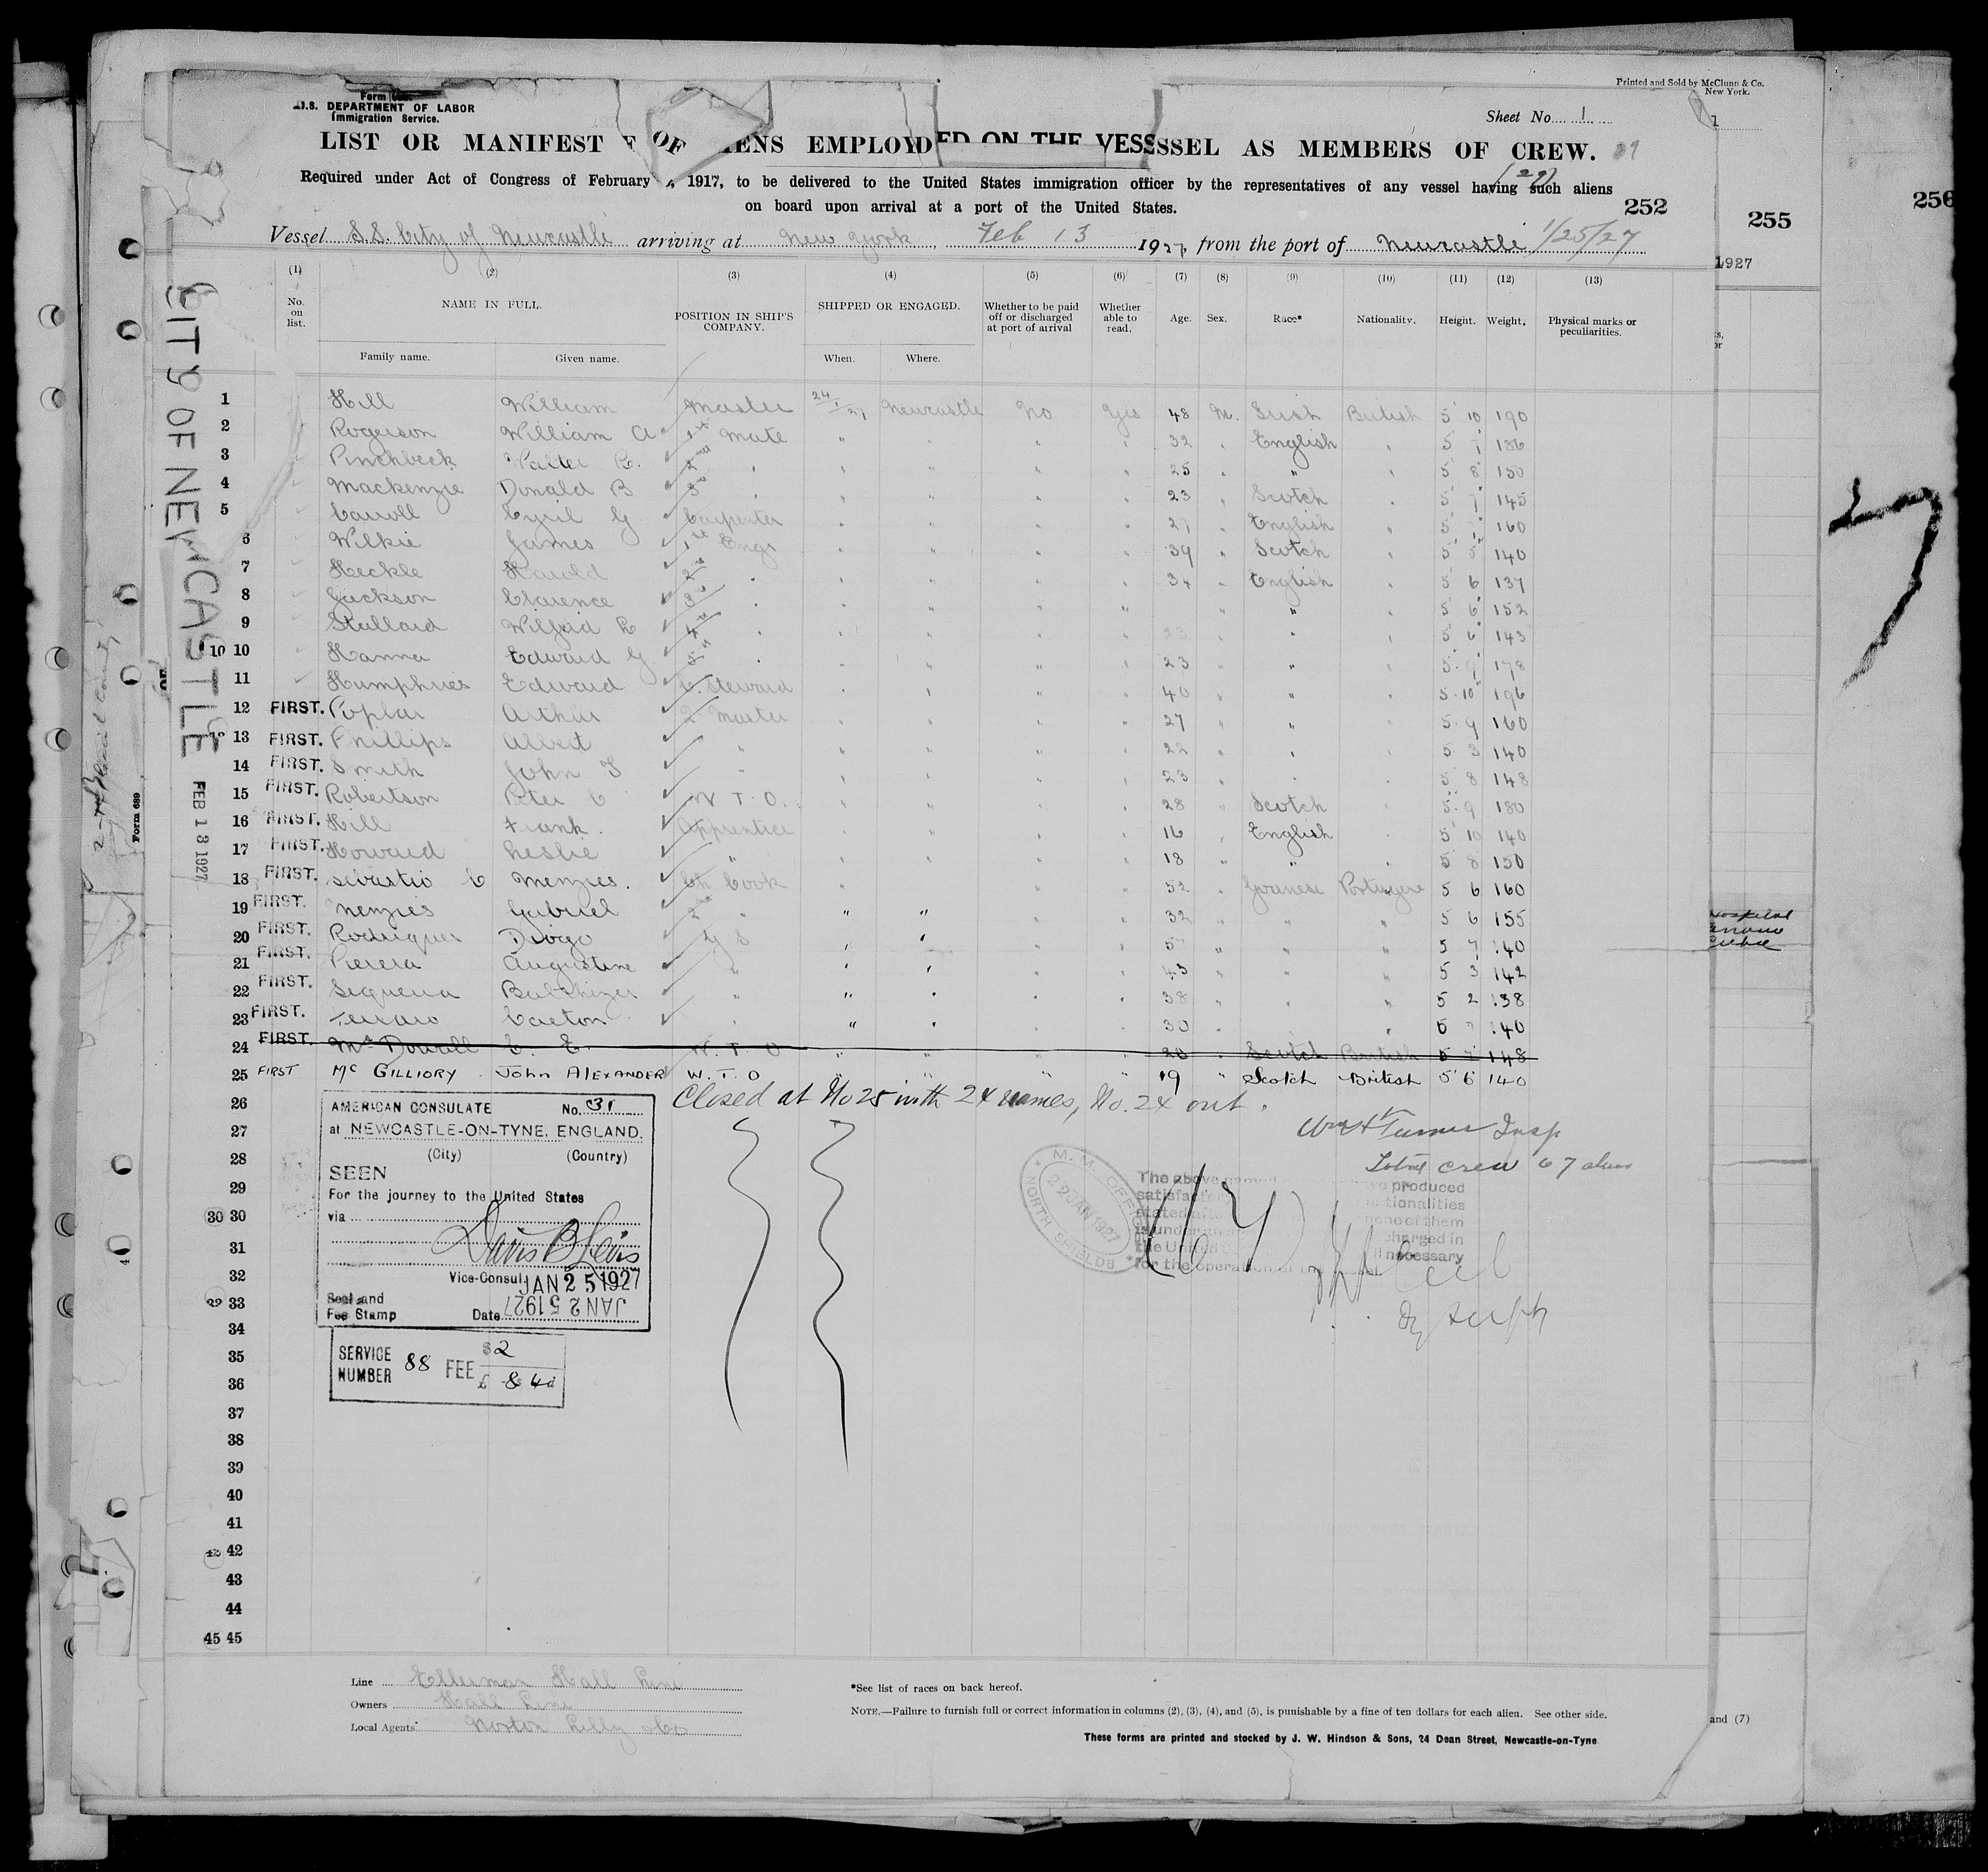 Printed and Sold by McClunn & Co.
New York.
U.S. DEPARTMENT OF LABOR
Immigration Service.
Sheet No. 1
LIST OR MANIFEST OF ALIENS EMPLOYED ON THE VESSEL AS MEMBERS OF CREW.
Required under Act of Congress of February 1917, to be delivered to the United States immigration officer by the representatives of any vessel having such aliens
on board upon arrival at a port of the United States.
252
255
256
Vessel S.S. City of Newcastle arriving at New York, Feb 13 1927, from the port of Newcastle 1/25/27
1927
(1) (2) (3) (4) (5) (6) (7) (8) (9) (10) (11) (12) (13)
No. on list. NAME IN FULL. POSITION IN SHIP'S COMPANY. SHIPPED OR ENGAGED. Whether to be paid off or discharged at port of arrival Whether able to read. Age. Sex. Race* Nationality. Height. Weight. Physical marks or peculiarities.
Family name. Given name. When. Where.
1 Hill William Master 24/1/27 Newcastle No Yes 48 M. Irish British 5 10 190
2 Rogerson William A 1st Mate " " " " 32 " English " 5 7 186
3 Pinchbeck Walter 2nd " " " " " 25 " " " 5 8 150
4 Mackenzie Donald B 3rd " " " " " 23 " Scotch " 5 7 145
5 Carroll Cyril G. Carpenter " " " " 27 " English " 5 160
6 Wilkie James 1st Engr " " " " 39 " Scotch " 5 5 140
7 Heckle Harold 2nd " " " " " 34 " English " 5 6 137
8 Jackson Clarence 3rd " " " " " " " " 5 6 152
9 Stallard Wilfrid 4th " " " " " 23 " " " 5 6 143
10 10 Hanna Edward G. 5th " " " " " 23 " " " 5 9 178
11 Humphries Edward C. Steward " " " " 40 " " " 5 10 196
12 FIRST. Poplar Arthur 2. Master " " " " 27 " " " 5 9 160
13 FIRST. Phillips Albert " " " " " 22 " " " 5 3 140
14 FIRST. Smith John " " " " " 23 " " " 5 8 148
15 FIRST. Robertson Peter C W. T. O. " " " " 28 " Scotch " 5 9 180
16 FIRST. Hill Frank. Apprentice " " " " 16 " English " 5 10 140
17 FIRST. Howard Leslie " " " " " 18 " " " 5 8 150
18 FIRST. Sebastio C Menzies. Ch Cook " " " " 52 " Goanese Portugese 5 6 160
19 FIRST. Menzies Gabriel 2nd " " " " " 32 " " " 5 6 155
20 FIRST. Rodrigues Diogo G S " " " " " " " 5 7 140
21 FIRST. Pierera Augustine " " " " " 43 " " " 5 3 142
22 FIRST. Sequeira " " " " " 38 " " " 5 2 138
23 FIRST. Caeton " " " " " 30 " " " 5 140
24 FIRST. McDowall C. E. W. T. O " " " " 20 " Scotch British 5 7 148
25 FIRST Mc GILLIORY John ALEXANDER W. T. O " " " " 19 " Scotch British 5 6 140
26 Closed at No 25 with 24 names, No. 24 out.
27
28
29
30 30
31
32
33
34
35
36
37
38
39
40
41
42 42
43
44
45 45
Wm H Turner Insp
Total crew 67 aliens
AMERICAN CONSULATE No. 31
at NEWCASTLE-ON-TYNE, ENGLAND.
(City) (Country)
SEEN
For the journey to the United States
via
Vice-Consul JAN 25 1927
Seal and
Fee Stamp Date JAN 25 1927
SERVICE NUMBER 88 FEE $2
£ 8 4d
M. M. OFFICE
22 JAN 1927
NORTH SHIELDS
The above named have produced
nationalities
stated
none of them
is under
charged in
the United
necessary
for the operation of
CITY OF NEWCASTLE
FEB 13 1927
Form 689
Line Ellerman Hall Line
Owners Hall Line
Local Agents Norton Lilly & Co
*See list of races on back hereof.
NOTE.—Failure to furnish full or correct information in columns (2), (3), (4), and (5), is punishable by a fine of ten dollars for each alien. See other side.
These forms are printed and stocked by J. W. Hindson & Sons, 24 Dean Street, Newcastle-on-Tyne
and (7)